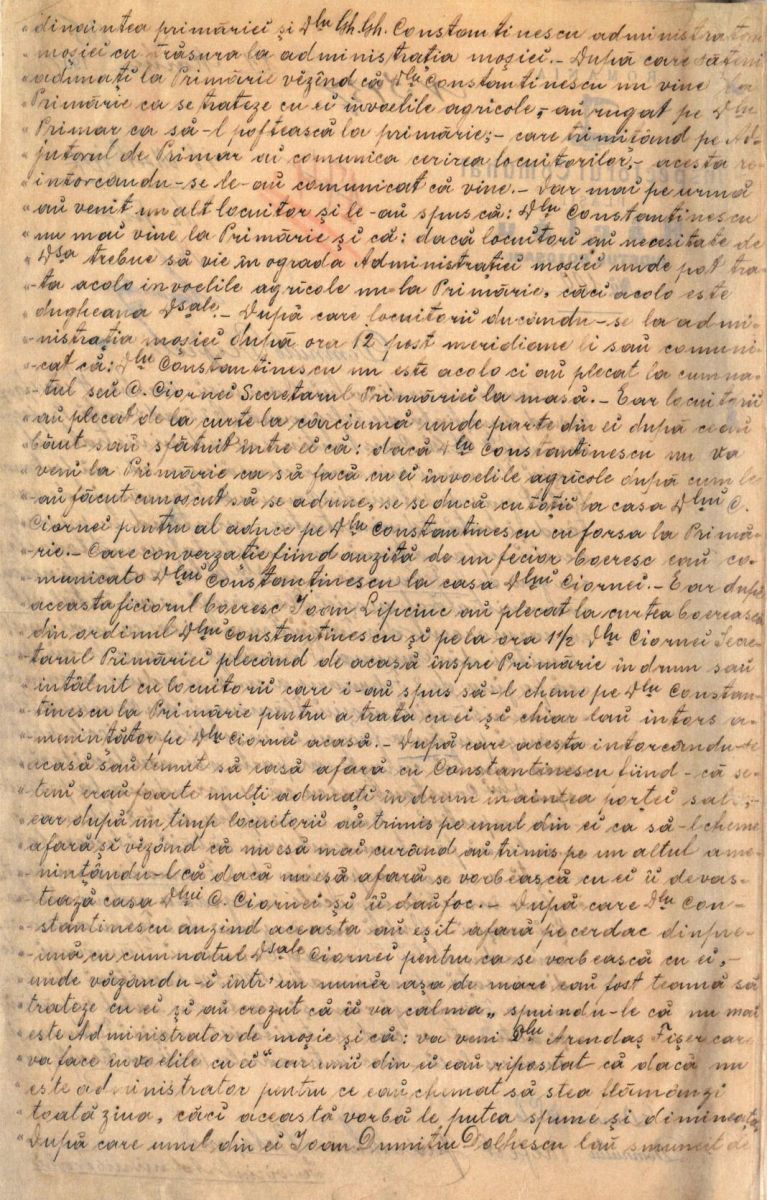 " dinaintea primăriei și Dlu Gh. Gh. Constantinescu administrator
" moșiei cu trăsura la administrația moșiei.- După care sătenii
" adunați la Primărie vĕzînd că Dlu Constantinescu nu vine la
" Primărie ca se trateze cu ei învoelile agricole,- au rugat pe Dlu
" Primar ca să-l poftească la primărie;- care trimițând pe Ad-
" jutorul de Primar au comunica cerirea locuitorilor,- acesta re-
" intorcandu-se le-au comunicat că vine.- Dar mai pe urmă
" au venit un alt locuitor și le-au spus că: Dlu Constantinescu
" nu mai vine la Primărie și că: dacă locuitori au necesitate de
" Dsa trebue să vie în ograda Administrației moșiei unde pot tra-
" ta acolo invoelile agricole nu la Primărie, căci acolo este
" dugheana Dsale.- După care locuitorii ducându-se la admi-
" nistrația moșiei după ora 12 post meridiane li sau comuni-
" cat că: Dlu Constantinescu nu este acolo ci au plecat la cumna-
" tul seŭ C. Ciornei Secretarul Primăriei la masă.- Ear locuitorii
" au plecat de la curte la cârciumă unde parte din ei după ce au
" băut sau sfătuit între ei că: dacă Dlu Constantinescu nu va
" veni la Primărie ca să facă cu ei învoelile agricole după cum le
" au făcut cunoscut să se adune, se se ducă cu toții la casa Dlui C.
" Ciornei pentru al aduce pe Dlu Constantinescu cu forsa la Primă-
" rie.- Care converzație fiind auzită de un fecior boeresc eau co-
" municato Dlui Constantinescu la casa Dlui Ciornei.- Ear după
" aceasta ficiorul boeresc Ioan Lipciuc au plecat la curtea boerească
" din ordinul Dlui Constantinescu și pe la ora 1½ Dlu Ciornei Secre-
" tarul Primăriei plecând de acasă inspre Primărie în drum sau
" intâlnit cu locuitorii care i-au spus să-l cheme pe Dlu Constan-
" tinescu la Primărie pentru a trata cu ei și chiar lau intors a-
" menințător pe Dlu Ciornei acasă.- După care acesta intorcandu-se
" acasă sau temut să easă afară cu Constantinescu fiind-că să-
" teni erau foarte mulți adunați în drum inaintea porței sale,-
" ear după un timp locuitorii au trimis pe unul din ei ca să-l cheme
" afară și vĕzând că nu esă mai curând au trimis pe un altul ame-
" nințându-l că dacă nu esă afară se vorbească cu ei îi devas-
" tează casa Dlui C. Ciornei și îi dau foc.- După care Dlu Con-
" stantinescu auzind aceasta au eșit afară pe cerdac dinpre-
" ună cu cumnatul Dsale Ciornei pentru ca se vorbească cu ei,-
" unde văzându-i intr'un numĕr așa de mare eau fost teamă să
" trateze cu ei și au crezut că îi va calma „ spuindu-le că nu mai
" este Administrator de moșie și că: va veni Dlu Arendaș Fișer care
" va face învoelile cu ei" ear unii din ei eau ripostat că dacă nu
" este administrator pentru ce eau chemat să stea flămânzi
" toată ziua, căci această vorbă le putea spune și dimineața
" După care unul din ei Ioan Dumitru Dolhescu lau smuncit de